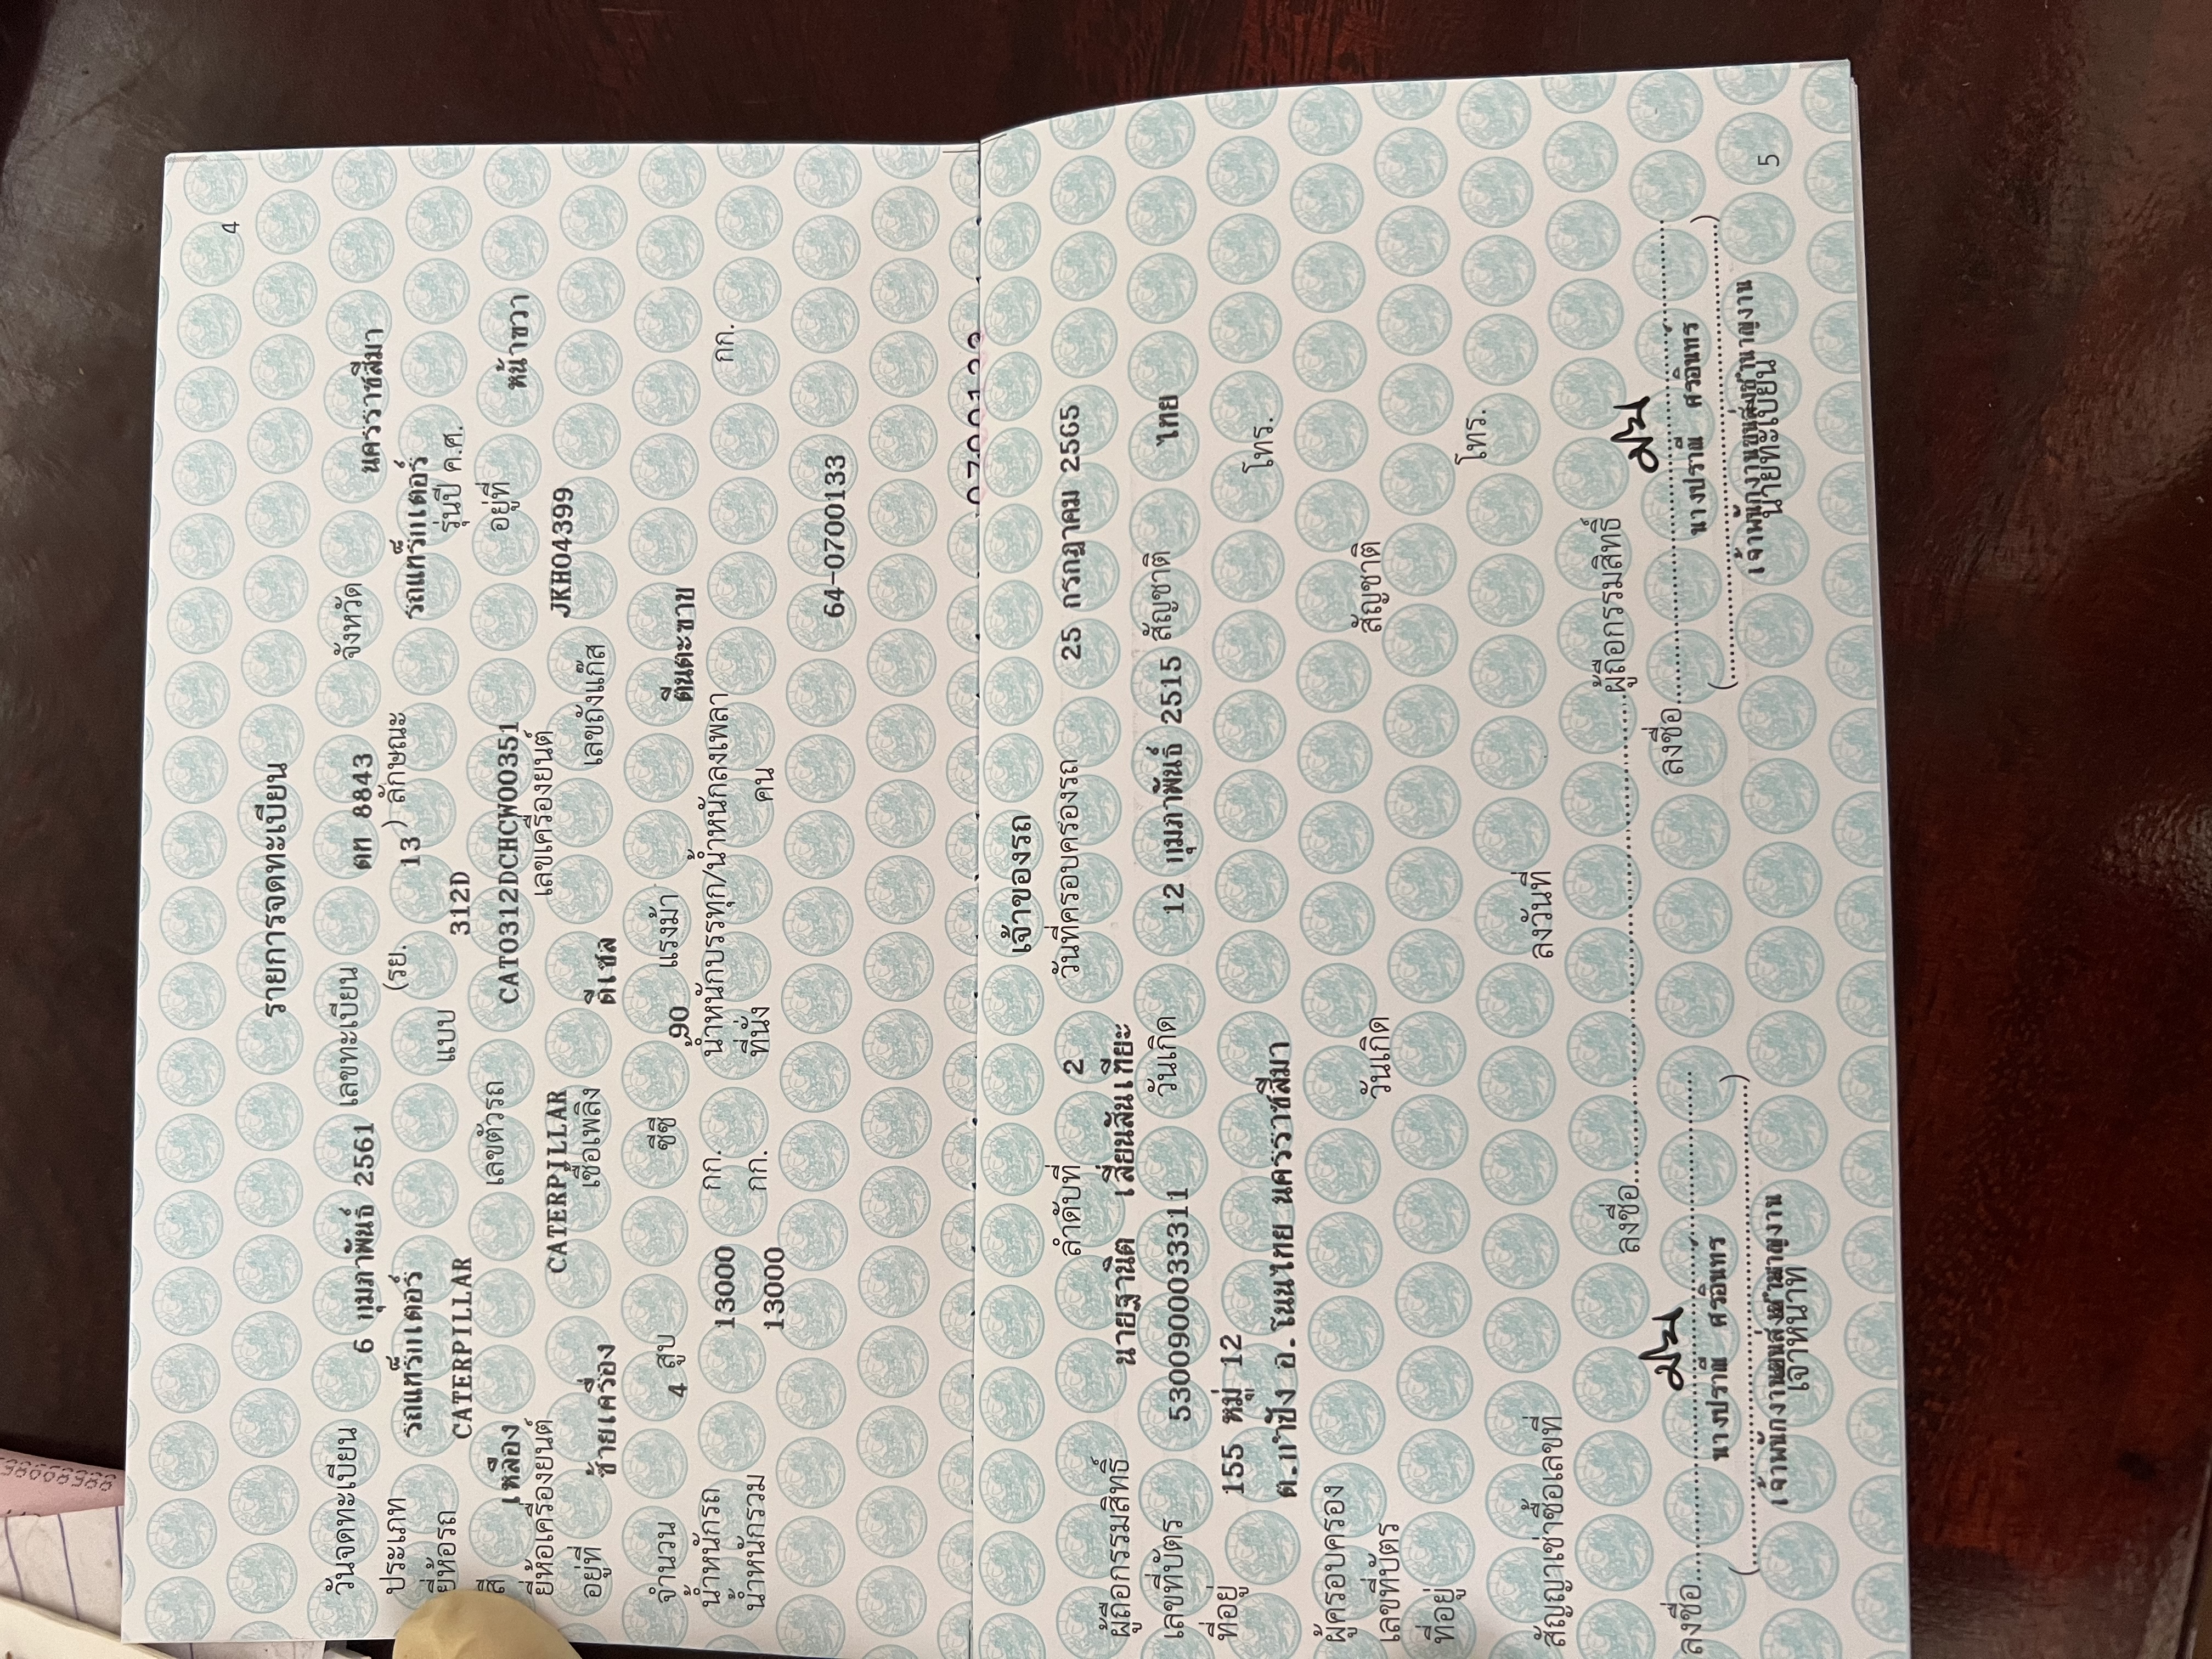 4
รายการจดทะเบียน
วันจดทะเบียน 6 กุมภาพันธ์ 2561 เลขทะเบียน ตก 8843 จังหวัด นครราชสีมา
ประเภท รถแทร็กเตอร์ (รย. 13 ) ลักษณะ รถแทร็กเตอร์
ยี่ห้อรถ CATERPILLAR แบบ 312D รุ่นปี ค.ศ.
สี เหลือง เลขตัวรถ CAT0312DCHCW00351 อยู่ที่ หน้าขวา
ยี่ห้อเครื่องยนต์ CATERPILLAR เลขเครื่องยนต์ JKH04399
อยู่ที่ ซ้ายเครื่อง เชื้อเพลิง ดีเซล เลขถังแก๊ส
จำนวน 4 สูบ ซีซี 90 แรงม้า ตีนตะขาบ
น้ำหนักรถ 13000 กก. น้ำหนักบรรทุก/น้ำหนักลงเพลา กก.
น้ำหนักรวม 13000 กก. ที่นั่ง คน
64-0700133
เจ้าของรถ
ลำดับที่ 2 วันที่ครอบครองรถ 25 กรกฎาคม 2565
ผู้ถือกรรมสิทธิ์ นายฐานิต เสี่ยนสันเทียะ
เลขที่บัตร 5300900033311 วันเกิด 12 กุมภาพันธ์ 2515 สัญชาติ ไทย
ที่อยู่ 155 หมู่ 12 โทร.
ต.กำปัง อ.โนนไทย นครราชสีมา
ผู้ครอบครอง
เลขที่บัตร วันเกิด สัญชาติ
ที่อยู่ โทร.
สัญญาเช่าซื้อเลขที่ ลงวันที่
ลงชื่อ ผู้ถือกรรมสิทธิ์
ลงชื่อ ลงชื่อ
นางปราณี ศรอินทร นางปราณี ศรอินทร
เจ้าพนักงานขนส่งชำนาญงาน เจ้าพนักงานขนส่งชำนาญงาน
เจ้าหน้าที่ นายทะเบียน
5